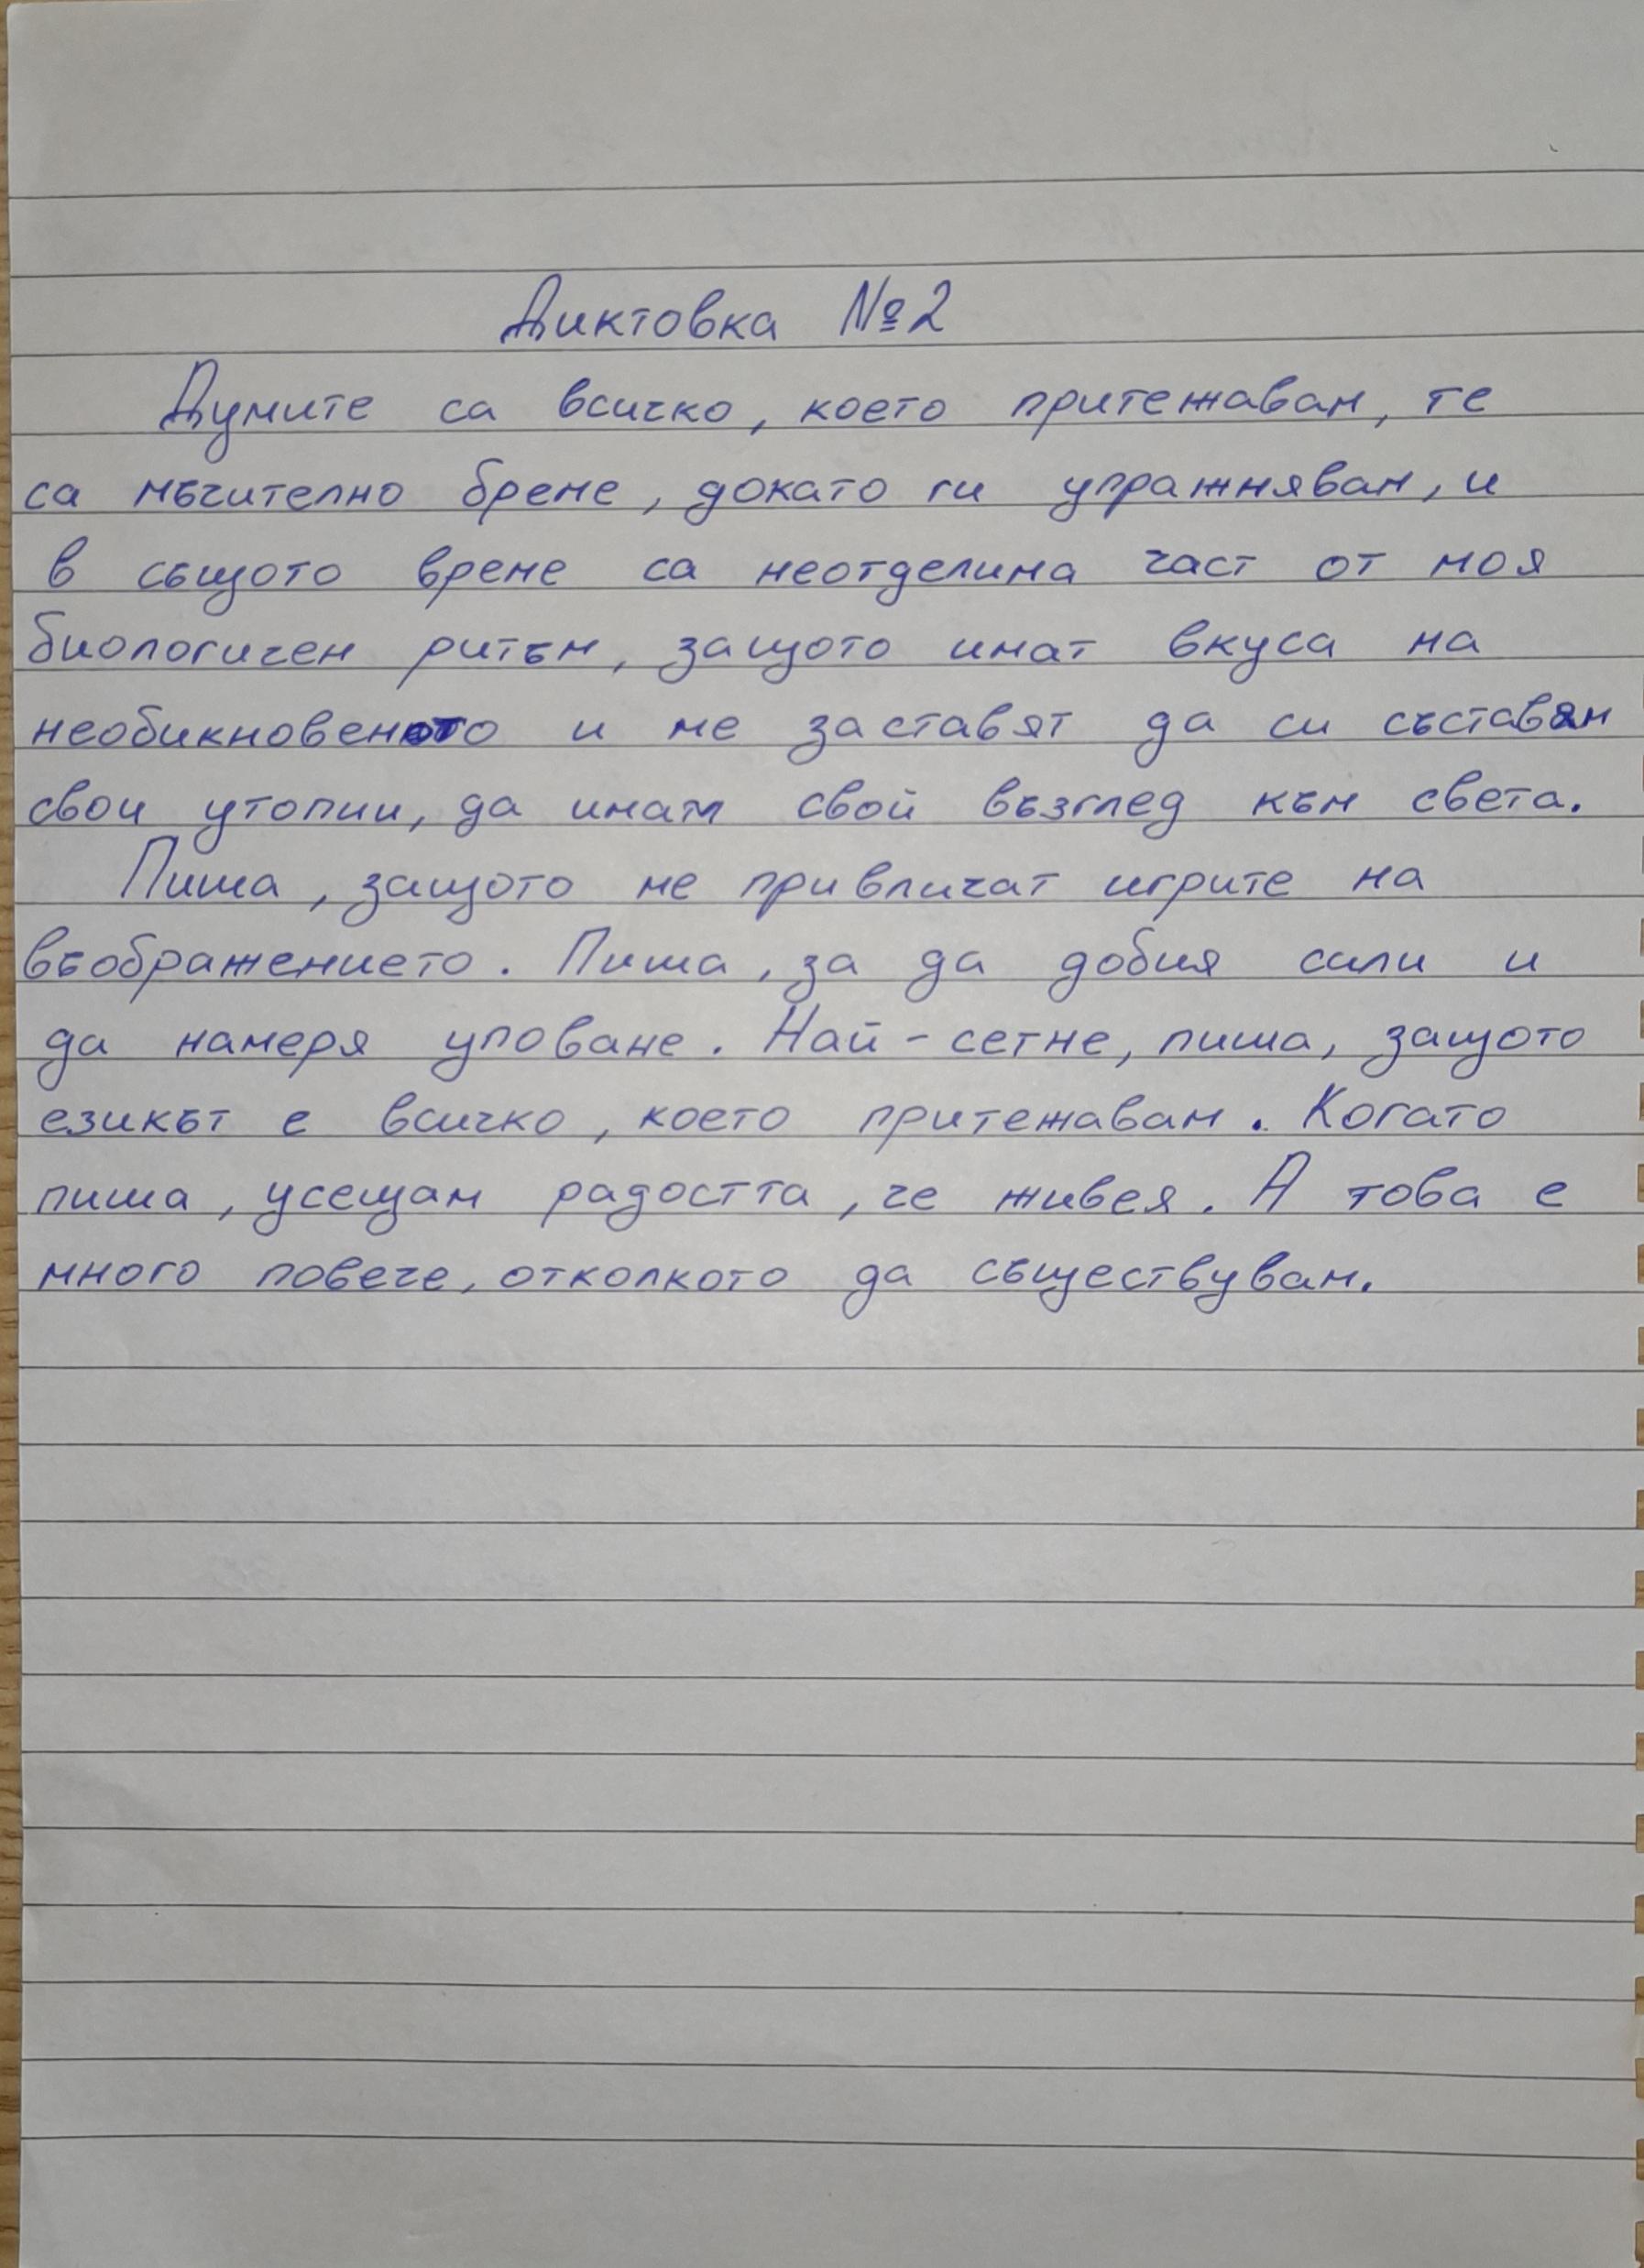 Диктовка №2
Думите са всичко, което притежавам, те
са мъчително бреме, докато ги упражнявам, и
в същото време са неотделима част от моя
биологичен ритъм, защото имат вкуса на
необикновеното и ме заставят да си съставям
свои утопии, да имам свой възглед към света.
Пиша, защото ме привличат игрите на
въображението. Пиша, за да добия сили и
да намеря упование. Най-сетне, пиша, защото
езикът е всичко, което притежавам. Когато
пиша, усещам радостта, че живея. А това е
много повече, отколкото да съществувам.